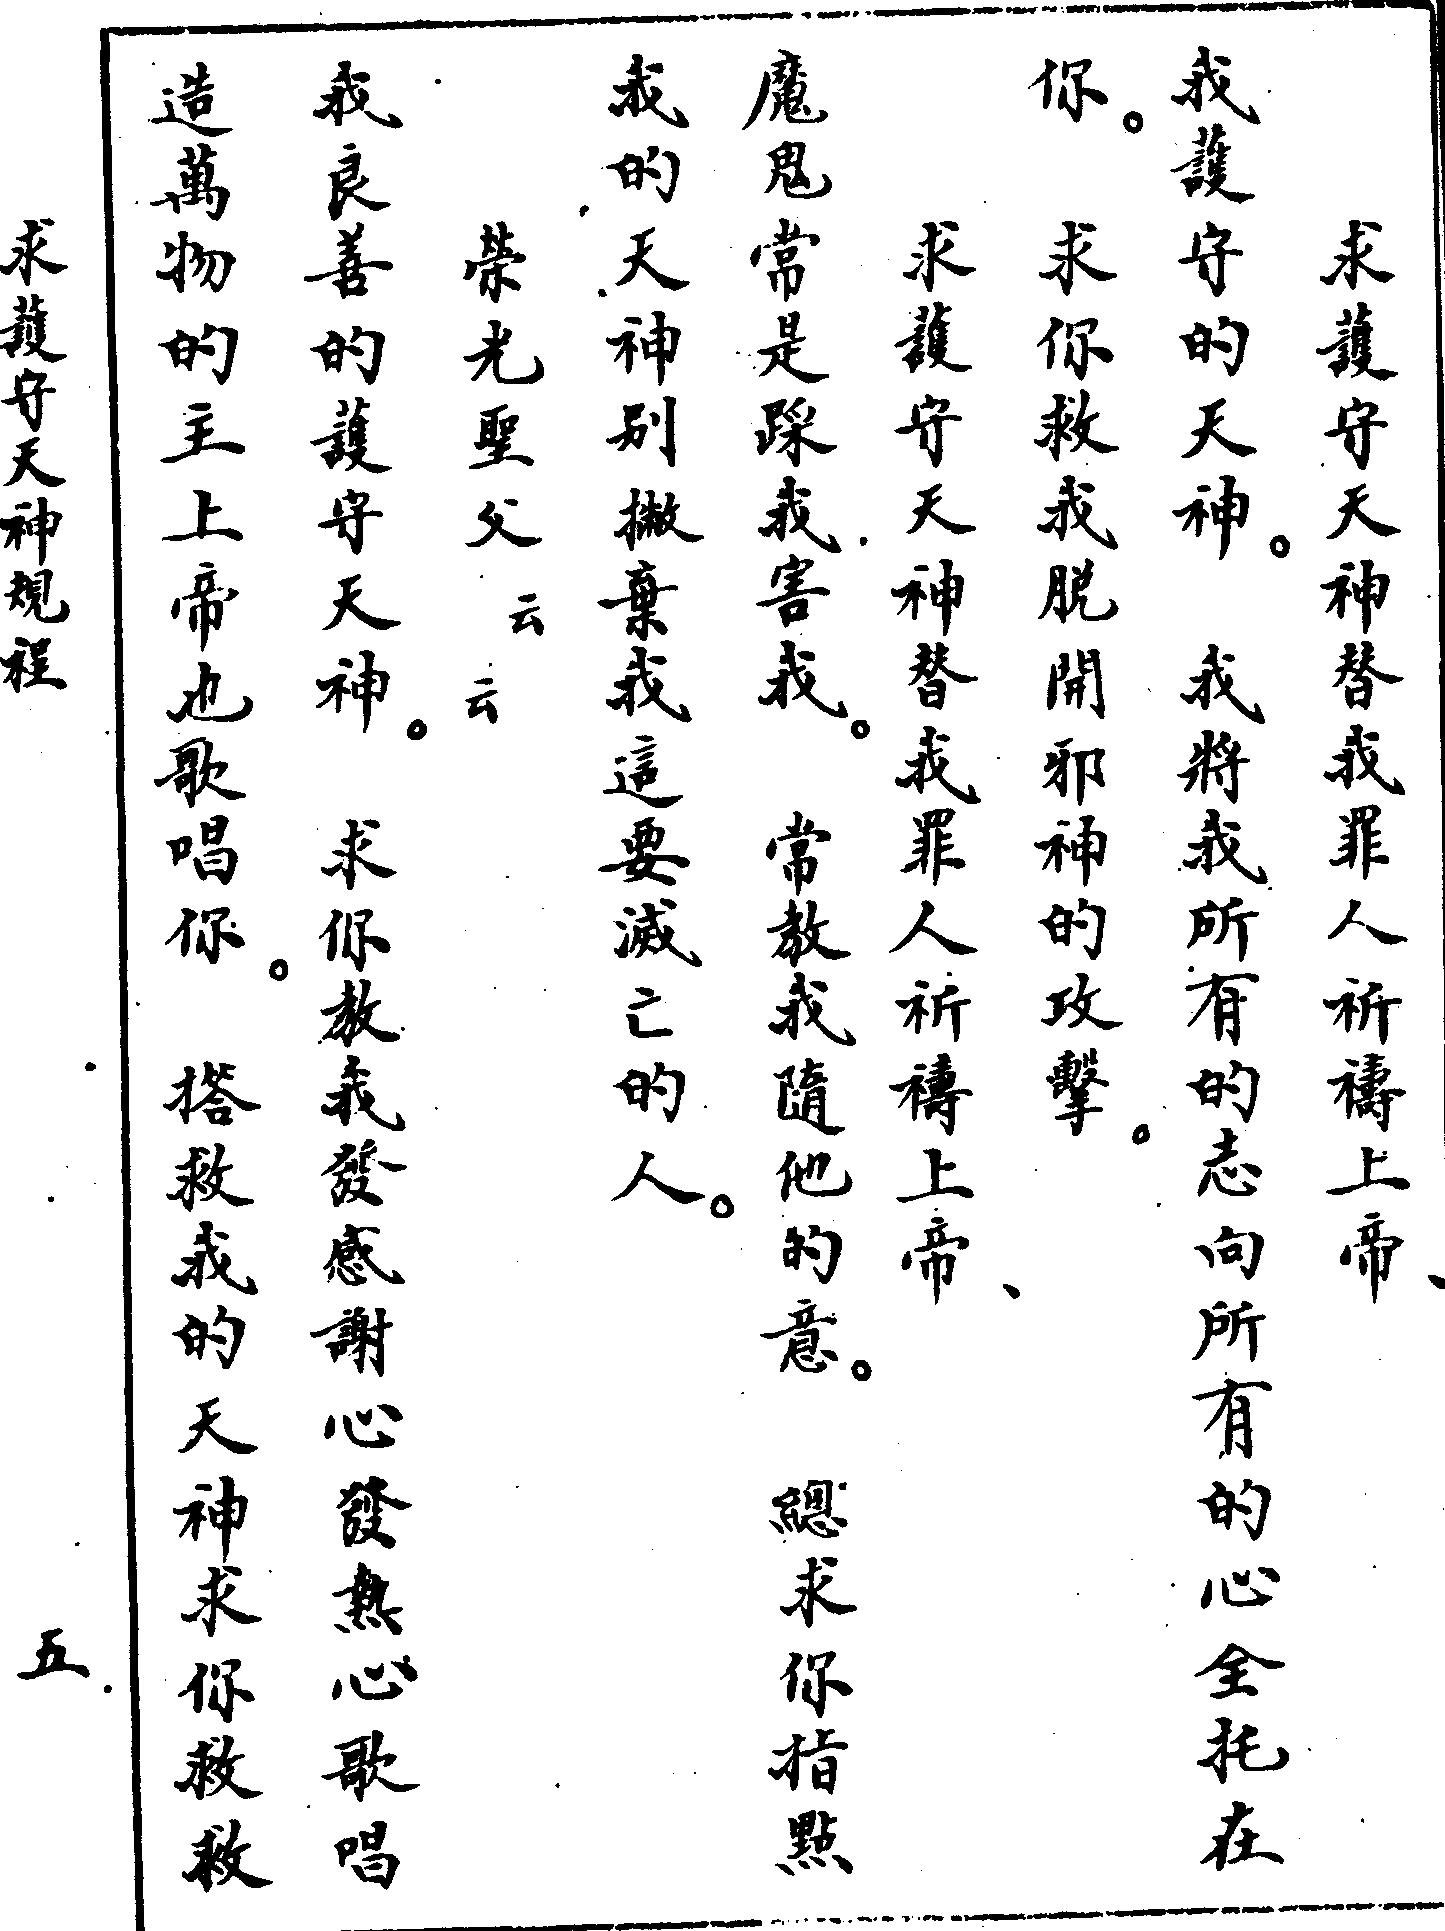 求護守天神替我罪人祈禱上帝、
我護守的天神。 我將我所有的志向所有的心全托在
你。 求你救我脱開邪神的攻擊。
求護守天神替我罪人祈禱上帝、
魔鬼常是踩我害我。 常教我隨他的意。 總求你指點
我的天神别撇棄我這要滅亡的人。
榮光聖父 云云
我良善的護守天神。 求你教我發感謝心發熱心歌唱
造萬物的主上帝也歌唱你。 搭救我的天神求你救救
求護守天神規程 五